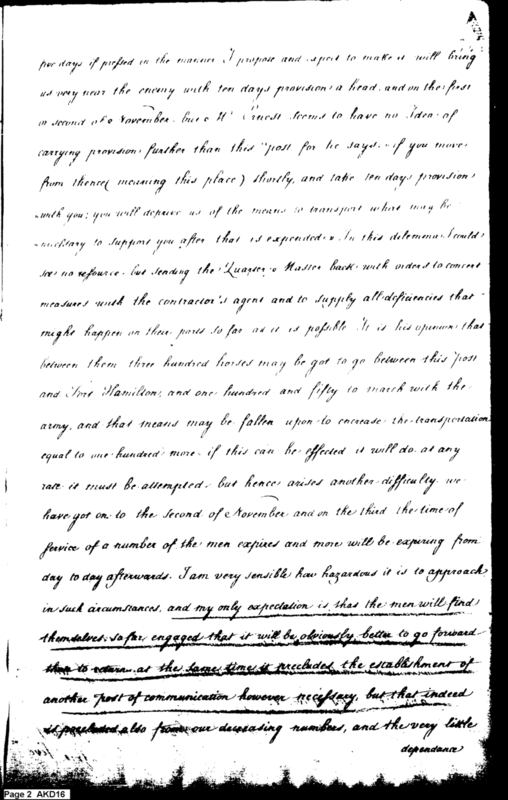 five days if pressed in the manner I propose and expect to make it will bring
us very near the enemy with ten days provisions a head and on the first
or second of November but Mr Ernest seems to have no Idea of
carrying provisions further than this post for he says "if you move
from thence (meaning this place) shortly, and take ten days provisions
with you; you will deprive us of the means to transport what may be
necessary to support you after that is expended" In this dilemma I could
see no resource but sending the Quarter Master back with orders to concert
measures with the contractor's agent and to supply all deficiencies that
might happen on their parts so far as it is possible It is his opinion that
between them three hundred horses may be got to go between this post
and Fort Hamilton, and one hundred and fifty to march with the
army, and that means may be fallen upon to encrease the transportation
equal to one hundred more. if this can be effected it will do. at any
rate it must be attempted. but hence arises another difficulty. we
have got on to the second of November and on the third the time of
service of a number of the men expires and more will be expiring from
day to day afterwards. I am very sensible how hazardous it is to approach
in such circumstances, and my only expectation is that the men will find
themselves so far engaged that it will be obviously better to go forward
than to return. at the same time it precludes the establishment of
another post of communication however necessary, but that indeed
is precluded also from our decreasing numbers, and the very little
dependance
Page 2 AKD16